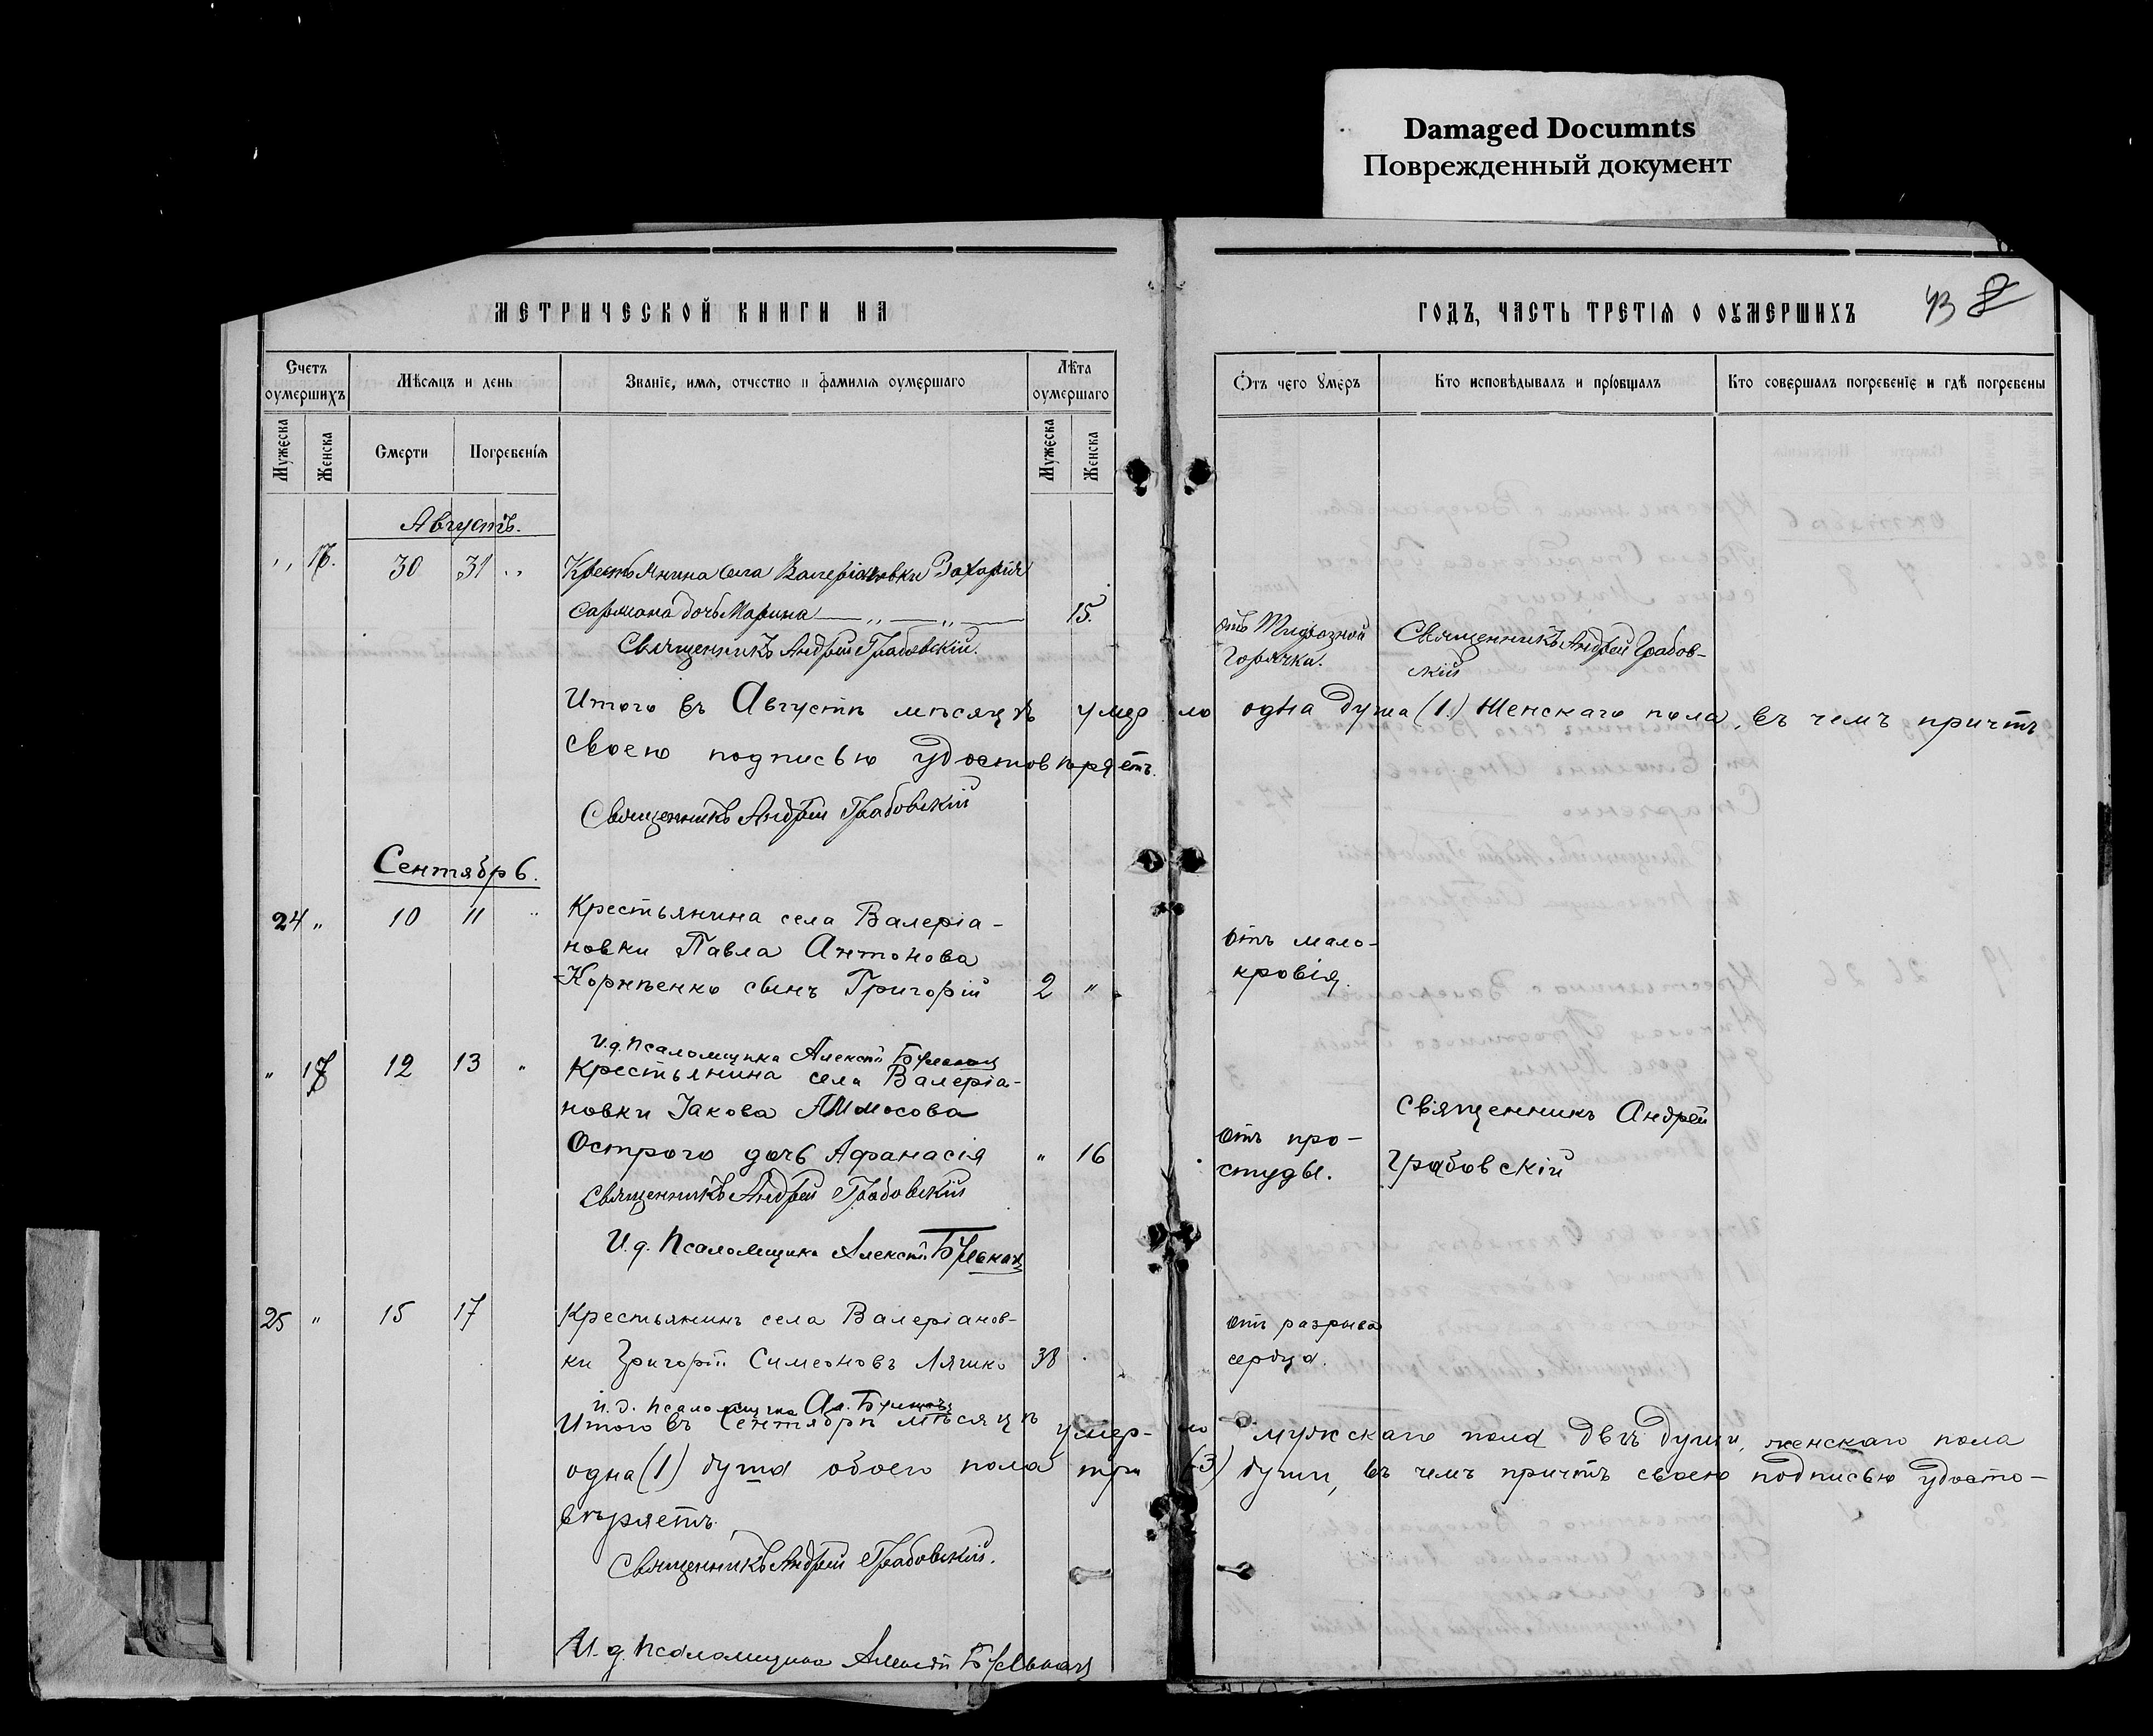 Damaged Documnts
Поврежденный документ
МЕТРИЧЕСКОЙ КНИГИ НА
ГОДЪ, ЧАСТЬ ТРЕТІЯ О ОУМЕРШИХЪ
43
Счетъ оумершихъ
Мѣсяцъ и день
Званіе, имя, отчество и фамилія оумершаго
Лѣта оумершаго
Отъ чего умеръ
Кто исповѣдывалъ и пріобщалъ
Кто совершалъ погребеніе и гдѣ погребены
Мужеска
Женска
Смерти
Погребенія
Мужеска
Женска
Августъ.
30 31 Крестьянина села Валеріановки Захарія
Сармана дочь Марина 15.
отъ Тифозной
Горячки.
Священникъ Андрей Грабов-
скій
Священникъ Андрей Грабовскій.
Итого въ Августѣ мѣсяцѣ умер ло одна душа (1.) Женскаго пола, въ чемъ причтъ
своею подписью удостовѣряетъ.
Священникъ Андрей Грабовскій
Сентябрь.
24 " 10 11 " Крестьянина села Валеріа-
новки Павла Антонова
Корнѣенко сынъ Григорій 2 "
отъ мало-
кровія.
И.д. Псаломщика Алексѣй
" 17 12 13 " Крестьянина села Валеріа-
новки Іакова Аммосова
Острого дочь Афанасія " 16
отъ про-
студы.
Священникъ Андрей
Грабовскій
Священникъ Андрей Грабовскій
И.д. Псаломщика Алексѣй
25 " 15 17 Крестьянинъ села Валеріанов-
ки Григорій Симеоновъ Ляшко 38
отъ разрыва
сердца.
И.д. Псаломщика Ал.
Итого въ Сентябрѣ мѣсяцѣ умер- ло мужскаго пола двѣ души, женскаго пола
одна (1) душа обоего пола три (3) души, въ чемъ причтъ своею подписью удосто-
вѣряетъ.
Священникъ Андрей Грабовскій.
И.д. Псаломщика Алексѣй